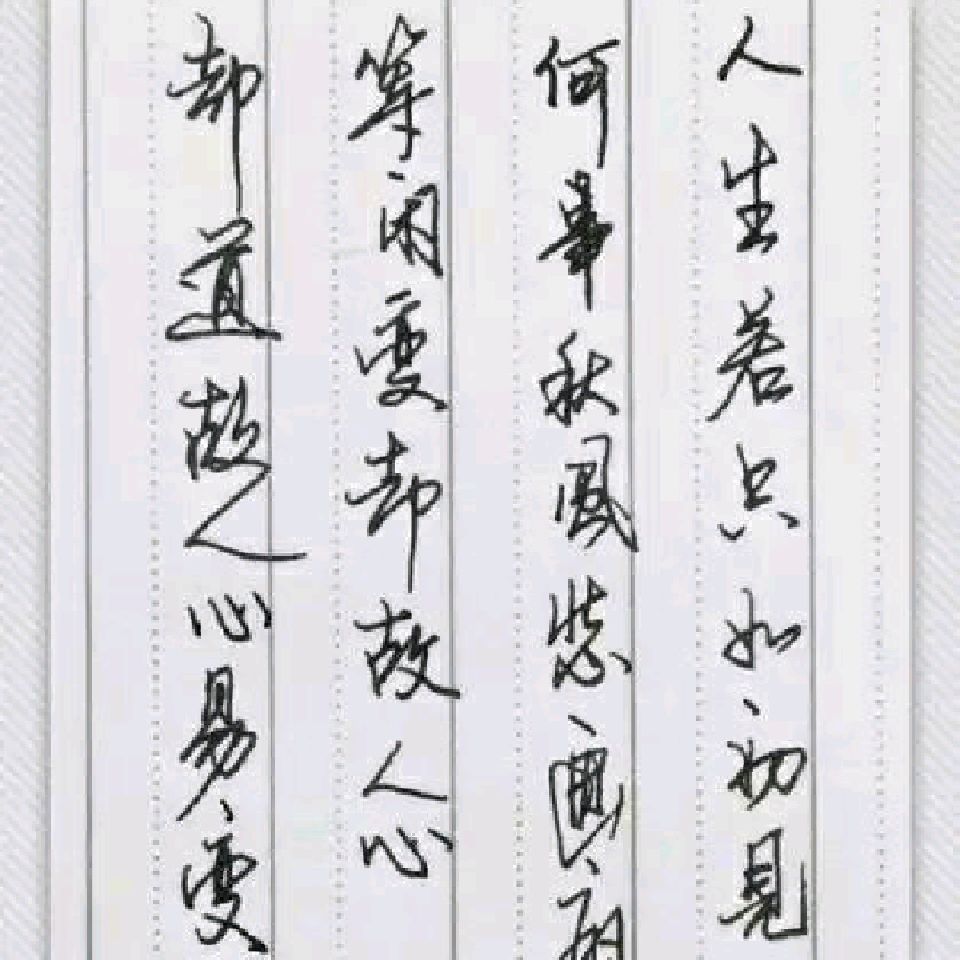 人生若只如初見
何事秋風悲画扇
等闲变却故人心
却道故人心易变